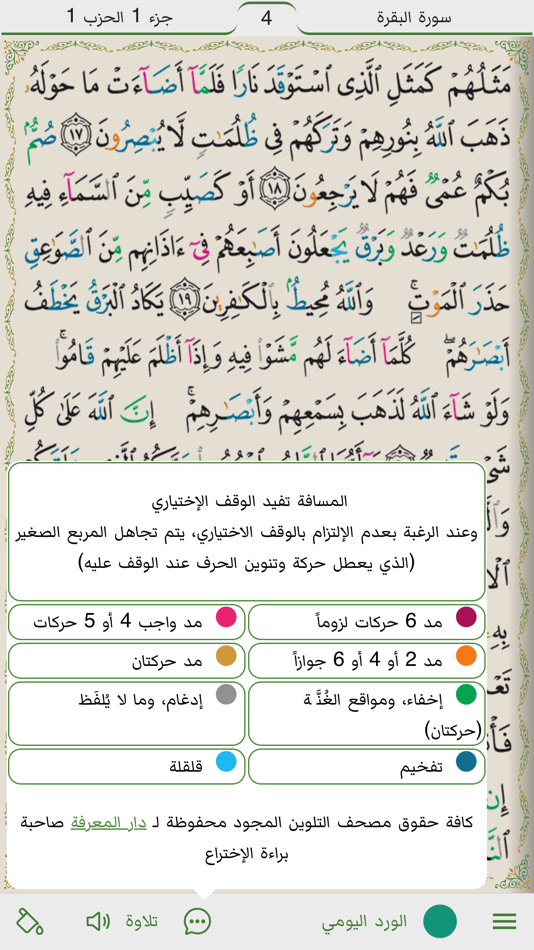 سورة البقرة
4
جزء 1 الحزب 1
مَثَلُهُمْ كَمَثَلِ الَّذِى اسْتَوْقَدَ نَارًا فَلَمَّآ أَضَآءَتْ مَا حَوْلَهُۥ
ذَهَبَ اللَّهُ بِنُورِهِمْ وَتَرَكَهُمْ فِى ظُلُمَٰتٍ لَّا يُبْصِرُونَ ١٧ صُمٌّۢ
بُكْمٌ عُمْىٌ فَهُمْ لَا يَرْجِعُونَ ١٨ أَوْ كَصَيِّبٍ مِّنَ السَّمَآءِ فِيهِ
ظُلُمَٰتٌ وَرَعْدٌ وَبَرْقٌ يَجْعَلُونَ أَصَٰبِعَهُمْ فِىٓ ءَاذَانِهِم مِّنَ الصَّوَٰعِقِ
حَذَرَ الْمَوْتِۚ وَاللَّهُ مُحِيطٌۢ بِالْكَٰفِرِينَ ١٩ يَكَادُ الْبَرْقُ يَخْطَفُ
أَبْصَٰرَهُمْۖ كُلَّمَآ أَضَآءَ لَهُم مَّشَوْا۟ فِيهِ وَإِذَآ أَظْلَمَ عَلَيْهِمْ قَامُوا۟ۚ
وَلَوْ شَآءَ اللَّهُ لَذَهَبَ بِسَمْعِهِمْ وَأَبْصَٰرِهِمْۚ إِنَّ اللَّهَ عَلَىٰ كُلِّ
المسافة تفيد الوقف الإختياري
وعند الرغبة بعدم الإلتزام بالوقف الاختياري، يتم تجاهل المربع الصغير
(الذي يعطل حركة وتنوين الحرف عند الوقف عليه)
مد 6 حركات لزوماً
مد واجب 4 أو 5 حركات
مد 2 أو 4 أو 6 جوازاً
مد حركتان
إخفاء، ومواقع الغُنَّة
(حركتان)
إدغام، وما لا يُلفَظ
تفخيم
قلقلة
كافة حقوق مصحف التلوين المجود محفوظة لـ دار المعرفة صاحبة
براءة الإختراع
الورد اليومي
تلاوة